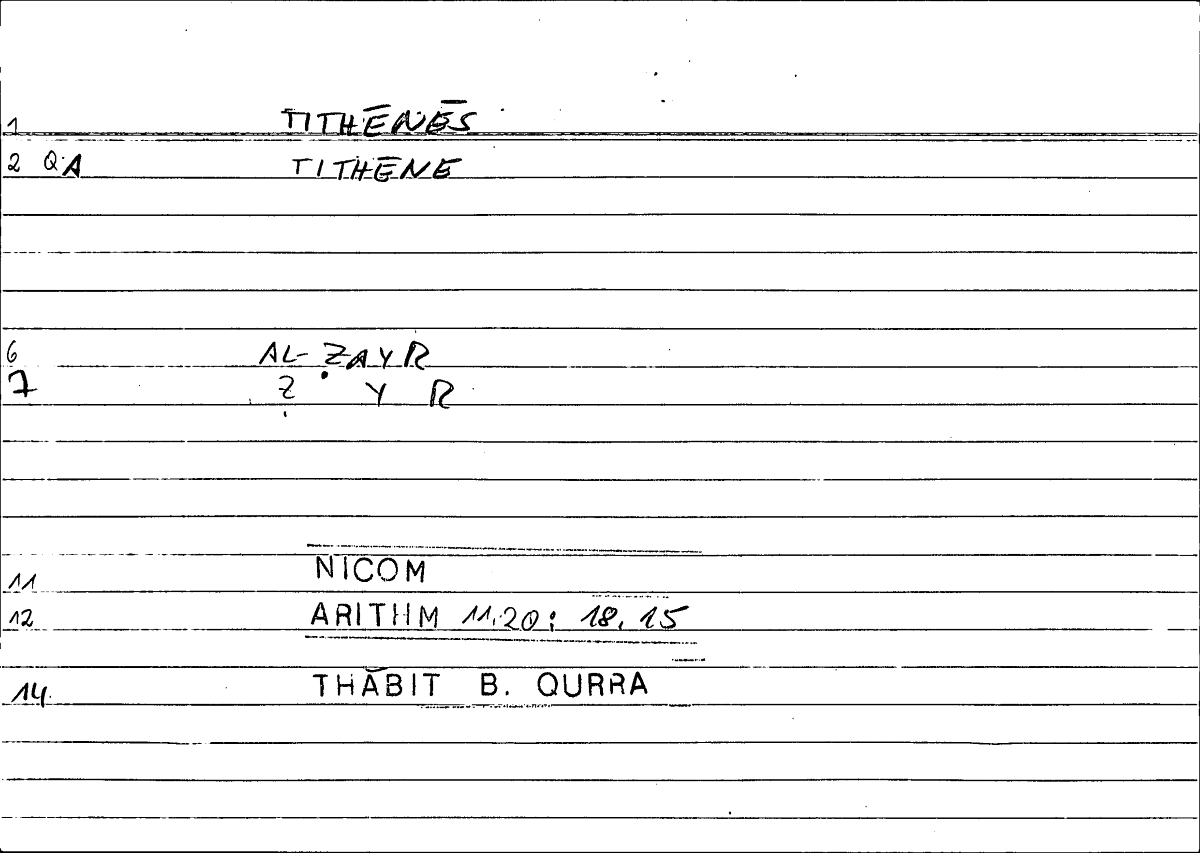 1 TITHĒNĒS
2 QA TITHĒNE
6 AL-ẒAYR
7 Ẓ Y R
11 NICOM
12 ARITHM 11,20: 18,15
14 THĀBIT B. QURRA